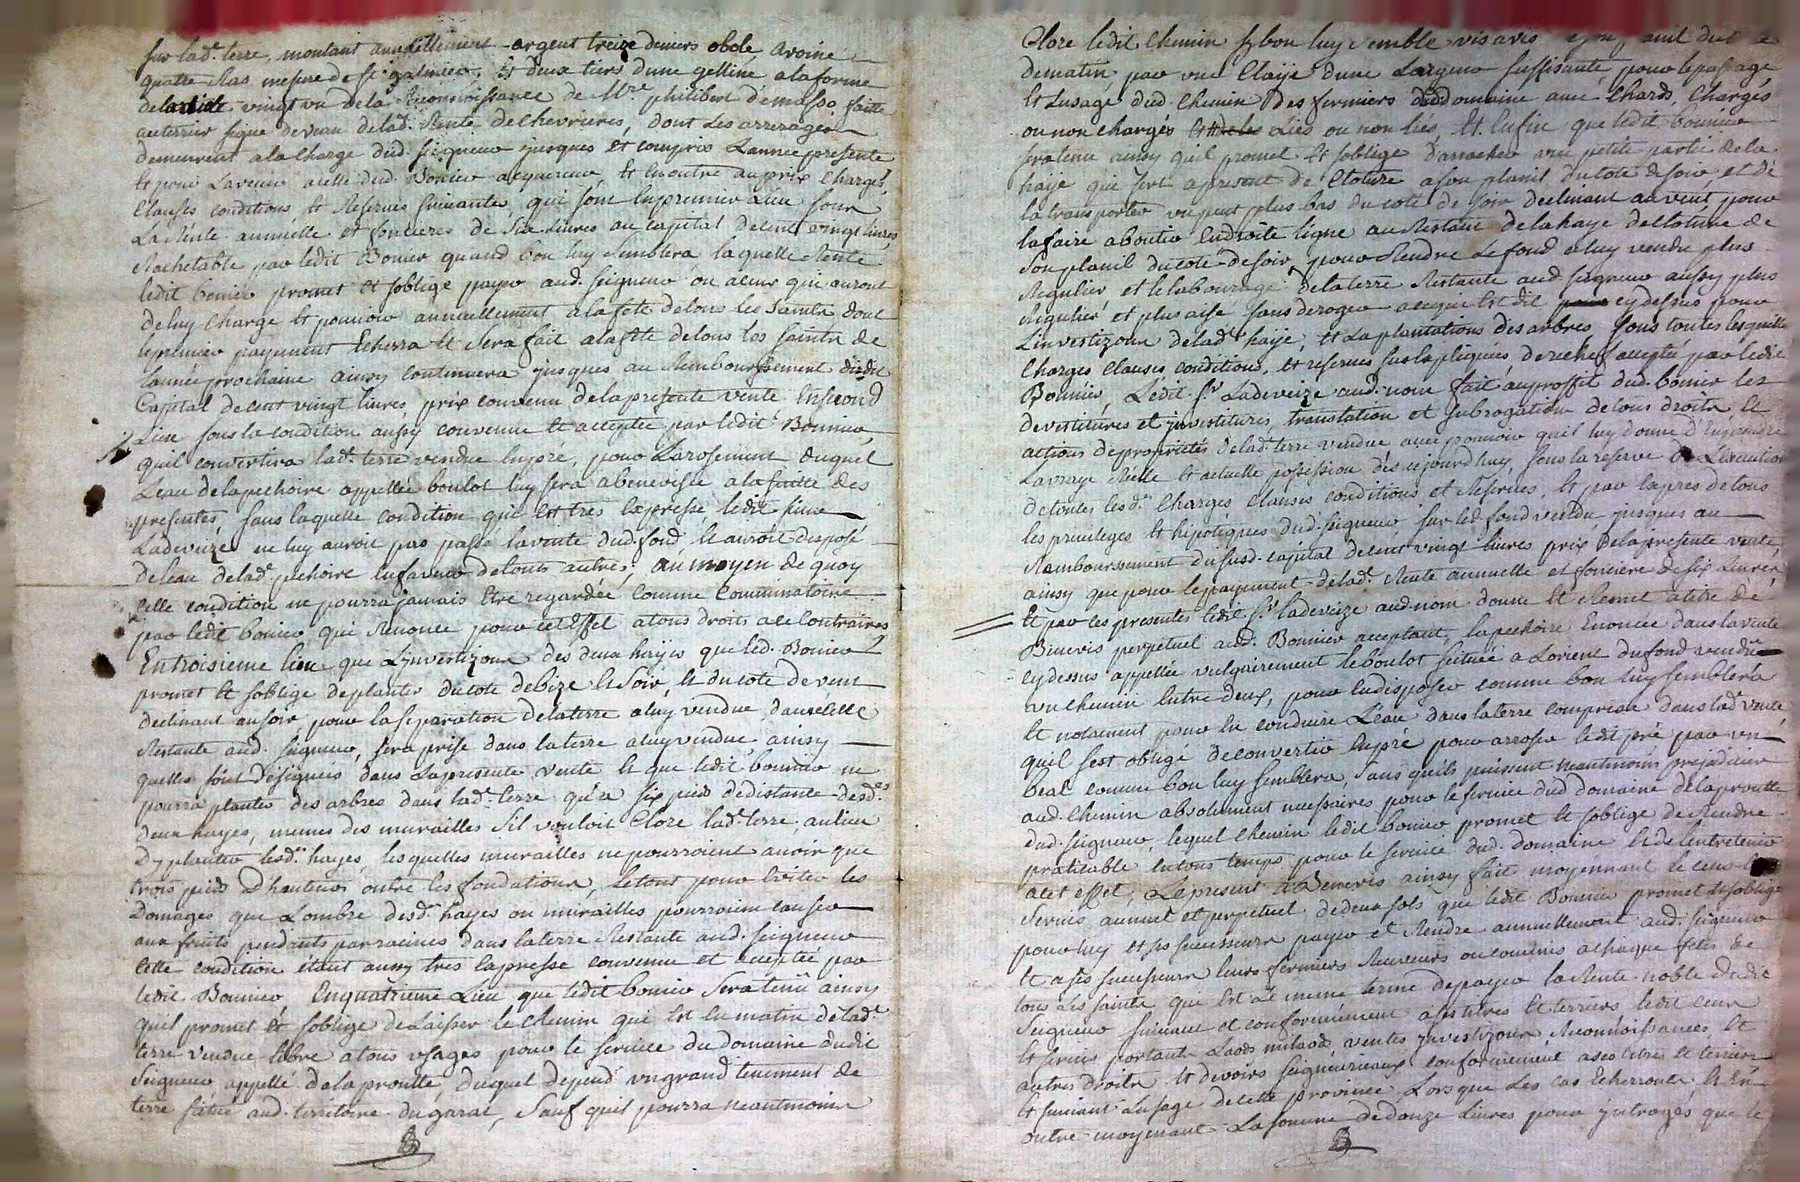 sur lad.e terre, montant annuellement argent treize deniers obole, avoine
quatre Ras mesure de st. galmier, et deux tiers d'une gelline a la forme
de larticle vingt un de la Reconnoissance de Mre. philibert demasso faitte
au terrier signé deveru de lad. Rente de chevrieres, dont les arrerages
demeurent a la charge dud. seigneur jusques et compris L'annee presente
et pour Lavenir a celle dud. Bonier acquereur et en outre au prix charges,
Clauses conditions, et Reserves suivantes, qui sont en premier Lieu sous
La Rente annuelle et fonciere de six livres au capital de cent vingt livres,
Rachetable par ledit Bonier quand bon luy semblera laquelle Rente
ledit bonier promet et soblige payer aud. seigneur ou a ceux qui auront
de luy charge et pouvoir annuellement a la fete de tous les saints dont
le premier payement Echerra et sera fait a la fete de tous los saints de
lannée prochaine ainsy continuera jusques au Remboursement dudit
Capital de cent vingt livres, prix convenu de la presente vente En second
Lieu sous la condition aussy convenue et acceptée par ledit Bonnier,
quil convertira lad.e terre vendue en pré, pour Larrosement duquel
Leau de la pechoire appellée boulot luy sera abenevisée a la suitte des
presentes, sans laquelle condition qui est tres Expresse ledit sieur
Ladeveize ne luy auroit pas passé la vente dud. fond, et auroit disposé
de leau de lad.e pechoire en faveur de touts autres; au moyen de quoy
cette condition ne pourra jamais Etre regardée comme comminatoire
par ledit bonier qui Renonce pour cet Effet a tous droits a ce contraires
En troisieme lieu que Linvestizon des deux hayes que led. Bonier
promet et soblige de planter du coté de bize et soir, et du coté de vent
declinant au soir pour la separation de la terre a luy vendue, d'avec celle
Restante aud. seigneur, sera prise dans la terre a luy vendue, ainsy
quelles sont designées dans La presente vente et que ledit bonnier ne
pourra planter des arbres dans lad.e terre qu'a six pieds de distance desd.es
deux hayes, memes des murailles sil vouloit Clore lad.e terre, au lieu
Dy planter lesd.es hayes, lesquelles murailles ne pourroient avoir que
trois pieds d'hauteur outre les fondations, le tout pour Eviter les
Domages que L'ombre desd.es hayes ou murailles pourroient causer
aux fruits pendants par racines dans la terre Restante aud. seigneur
cette condition etant aussy tres Expresse convenue et acceptée par
ledit Bonnier, En quatrieme Lieu que ledit bonier sera tenu ainsy
quil promet et soblige de Laisser le chemin qui est en matin de lad.e
terre vendue libre a tous usages pour le service du domaine dudit
Seigneur appellé de la proutte, duquel depend un grand tenement de
terre situé aud. territoire du garat, sauf quil pourra neantmoins
Clore ledit chemin sy bon luy semble vis avis
de matin, par une Claije d'une Largeur suffisante, pour le passage
et Lusage dud. chemin des fermiers dud. domaine avec chards, chargés
ou non chargés liés ou non liés, et Enfin que ledit bonnier
sera tenu ainsy quil promet et soblige d'arracher une petite partie de la
haije qui sert a present de Cloture a son planil du coté de soir, et de
la transporter un peut plus bas du coté de soir declinant au vent pour
la faire aboutir En droite ligne au Restant de la haye de cloture de
son planil du coté de soir, pour Rendre Le fond a luy vendu plus
Regulier et le labourage de la terre Restante aud. seigneur aussy plus
Regulier et plus aisé sans deroger a ce qui est dit cy dessus pour
Linvestizon de lad.e haije, et La plantations des arbres sous toutes lesquelles
Charges clauses conditions, et reserves sus expliquées de rechef accepté par ledit
Bonnier, Ledit Sr. Ladeveize aud. nom fait au proffit dud. bonier les
devestitures et jnvestitures, translation et subrogation de tous droits, et
actions de proprietés de lad.e terre vendue avec pouvoir quil luy donne d'En prendre
La vraye Réelle et actuelle possession dès ce jourd'huy, sous la reserve de L'execution
de toutes lesd.es Charges Clauses conditions et Reserves, et par Expres de tous
les privileges et hipoteques dud. seigneur sur led. fond vendu, jusques au
Remboursement du susd. capital de cent vingt livres prix de la presente vente,
ainsy que pour le payement de lad.e Rente annuelle et fonciere de six livres
Et par ces presentes ledit Sr. ladeveize aud. nom donne et Remet a titre de
Benevis perpetuel aud. Bonnier acceptant, la pechoire Enoncée dans la vente
cy dessus appellée vulgairement le boulot scituée a Lorient du fond vendu
un chemin Entre deux, pour En disposer comme bon luy semblera
et notament pour En conduire L'eau dans la terre comprise dans lad.e vente,
quil sest obligé de convertir En pré pour arroser ledit pré par un
beal comme bon luy semblera, sans qu'ils puissent neantmoins prejudicier
aud. chemin absolument necessaires pour le service dud. domaine de la proutte
dud. seigneur, lequel chemin ledit bonier promet et soblige de Rendre
praticable en tous temps pour le service dud. domaine et de l'entretenir
a cet effet; Le present Benevis ainsy fait moyennant le cens
servis annuel et perpetuel de deux sols que ledit Bonnier promet et soblige
pour luy et ses successeurs payer et Rendre annuellement aud. seigneur
et a ses successeurs leurs fermiers Receveurs ou commis a chaque fetes de
tous Les saints qui est le meme terme de payer la Rente noble dudit
Seigneur suivant et conformément a ses titres et terriers ledit cens
et servis portant Laods milaods ventes jnvestizons, Reconnoissances et
autres droits et devoirs seigneuriaux conformement a ses titres et terriers
et suivant Lusage de cette province, Lorsque les cas Echerront, et En
outre moyenant La somme de douze Livres pour jntroges, que le